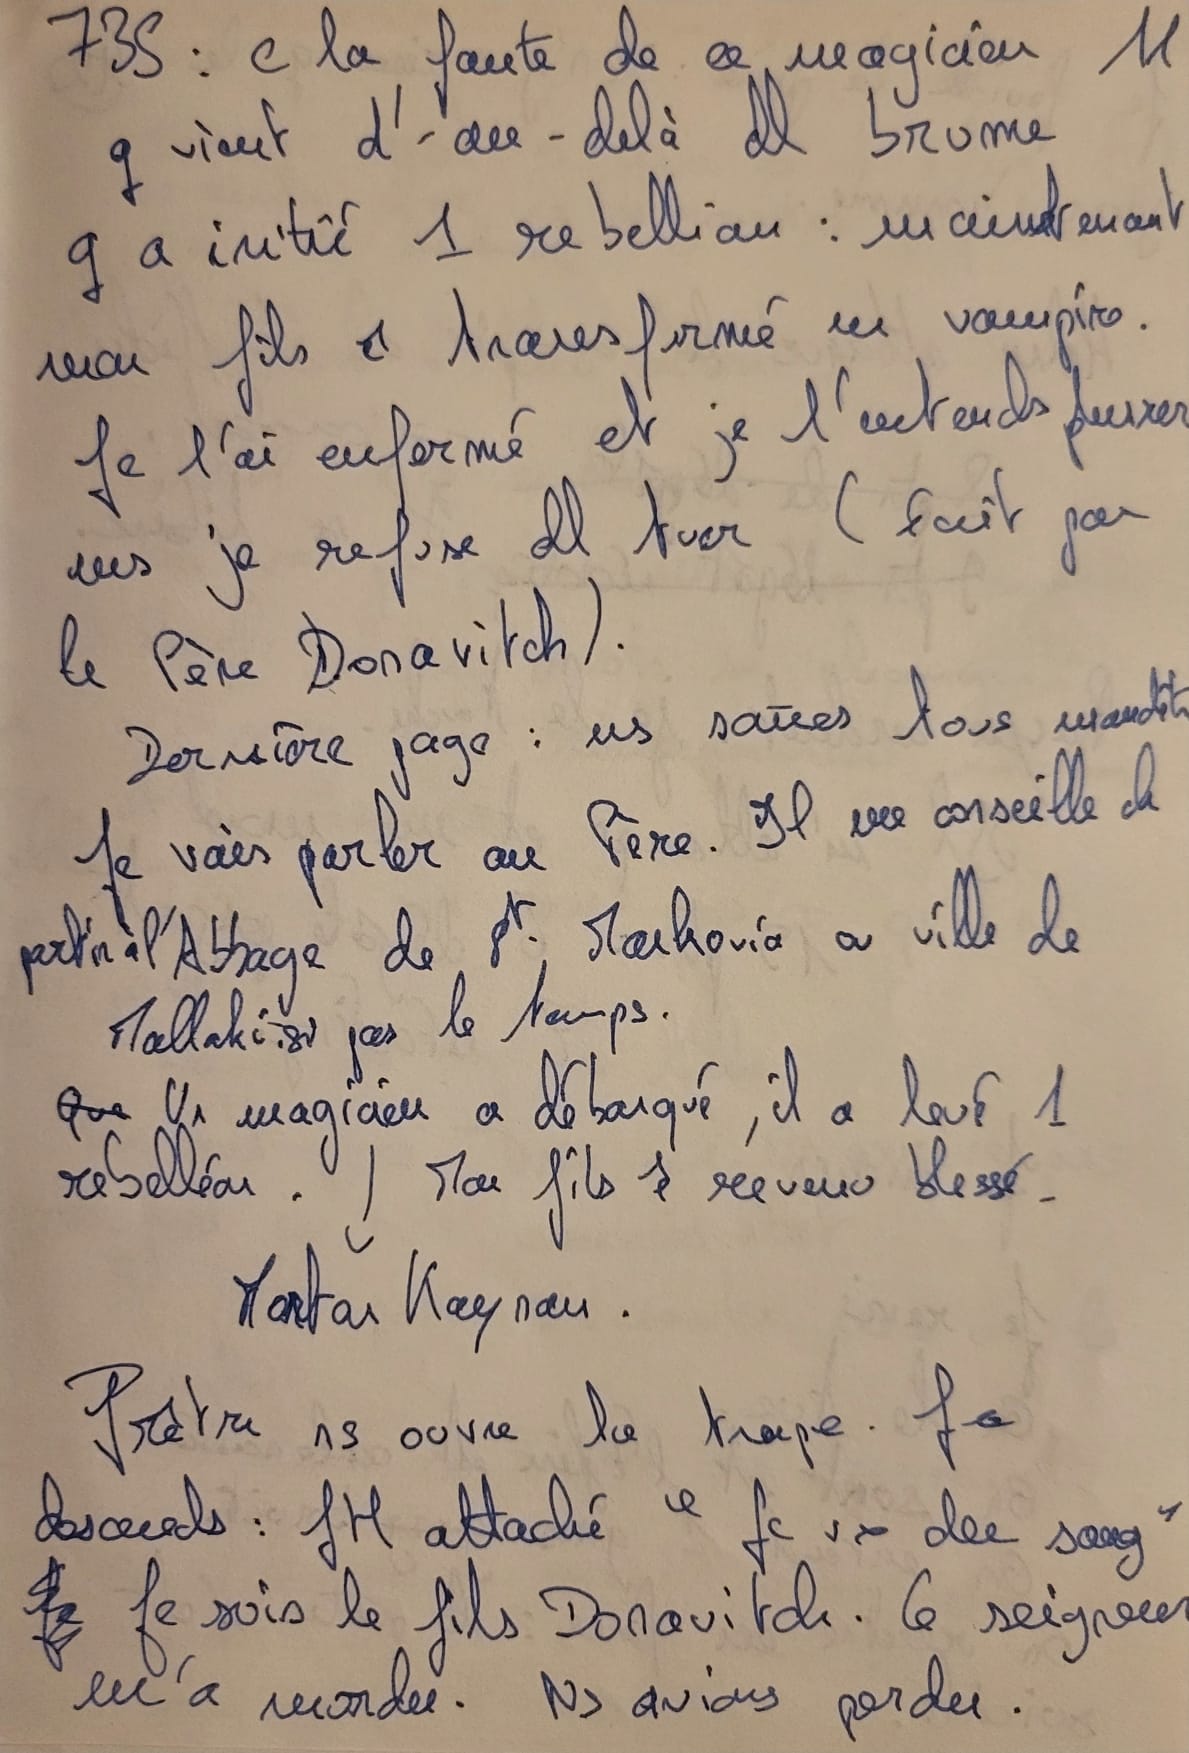 735 : c la faute de ce magicien
q vient d'-au-delà dl brume
q a initié 1 rebellion : maintenant
mon fils e transformé en vampire.
Je l'ai enfermé et je l'entends
ms je refuse dl tuer ( écrit par
le Père Donavitch).
Dernière page : ns sommes tous maudits
Je vais parler au Père. Il me conseille de
partir à l'Abbaye de St. Markovia a ville de
Mallaki. pas le temps.
Un magicien a débarqué, il a levé 1
rebellion. Mon fils e revenu blessé.
Kaynan.
Prêtre ns ouvre la trape. Je
descends : JH attaché " Je vx du sang "
Je suis le fils Donavitch. Le seigneur
m'a mordu. Ns avions perdu.